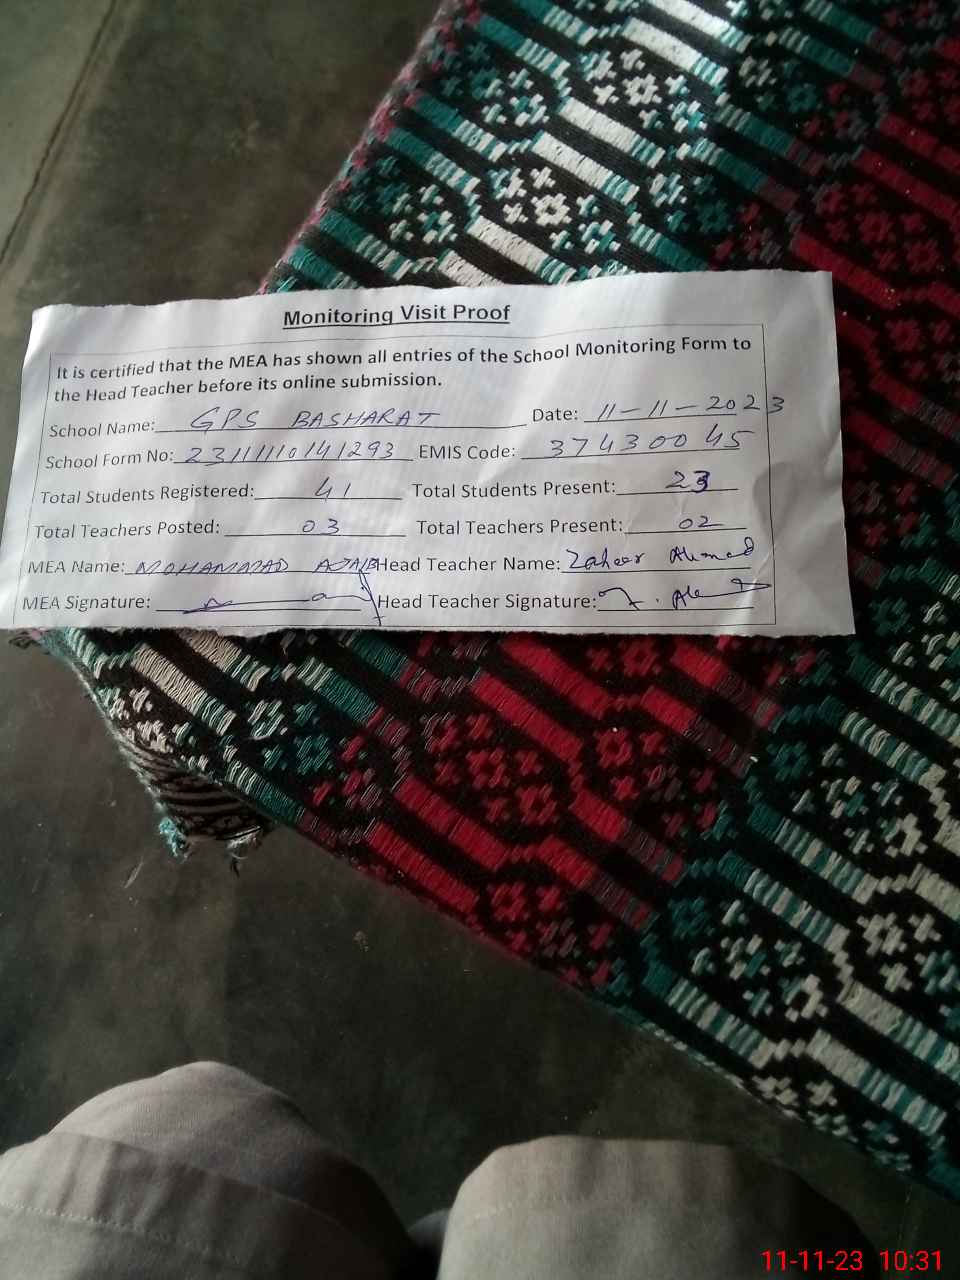 Monitoring Visit Proof
It is certified that the MEA has shown all entries of the School Monitoring Form to
the Head Teacher before its online submission.
School Name: GPS BASHARAT Date: 11-11-2023
School Form No: EMIS Code: 37430045
Total Students Registered: 41 Total Students Present: 23
Total Teachers Posted: 03 Total Teachers Present: 02
MEA Name: MOHAMMAD AJAIB Head Teacher Name: Zaheer Ahmed
MEA Signature: Head Teacher Signature:
11-11-23 10:31